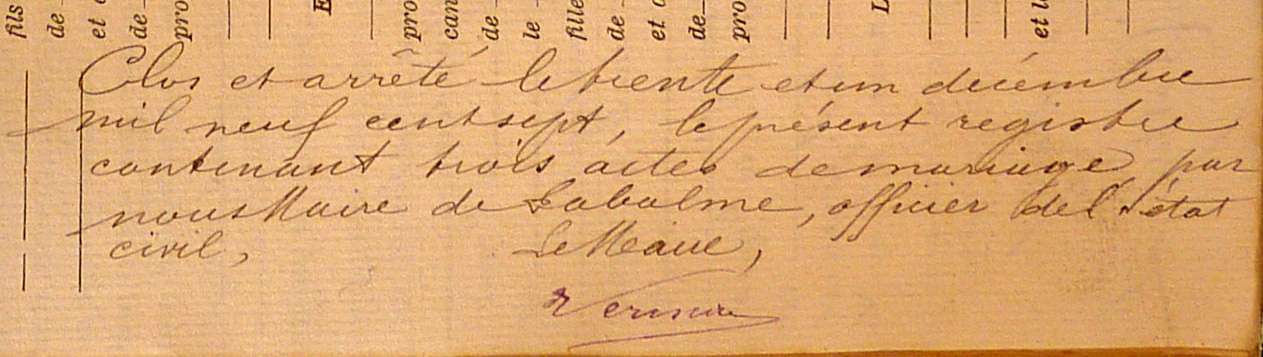 fils
de
et
de
pro
E
pro
can
de
le
fille
de
et
de
pro
L
et l
Clos et arrêté le trente et un décembre
mil neuf cent sept, le présent registre
contenant trois actes de mariage, par
nous Maire de Labalme, officier de l'état
civil, Le Maire,